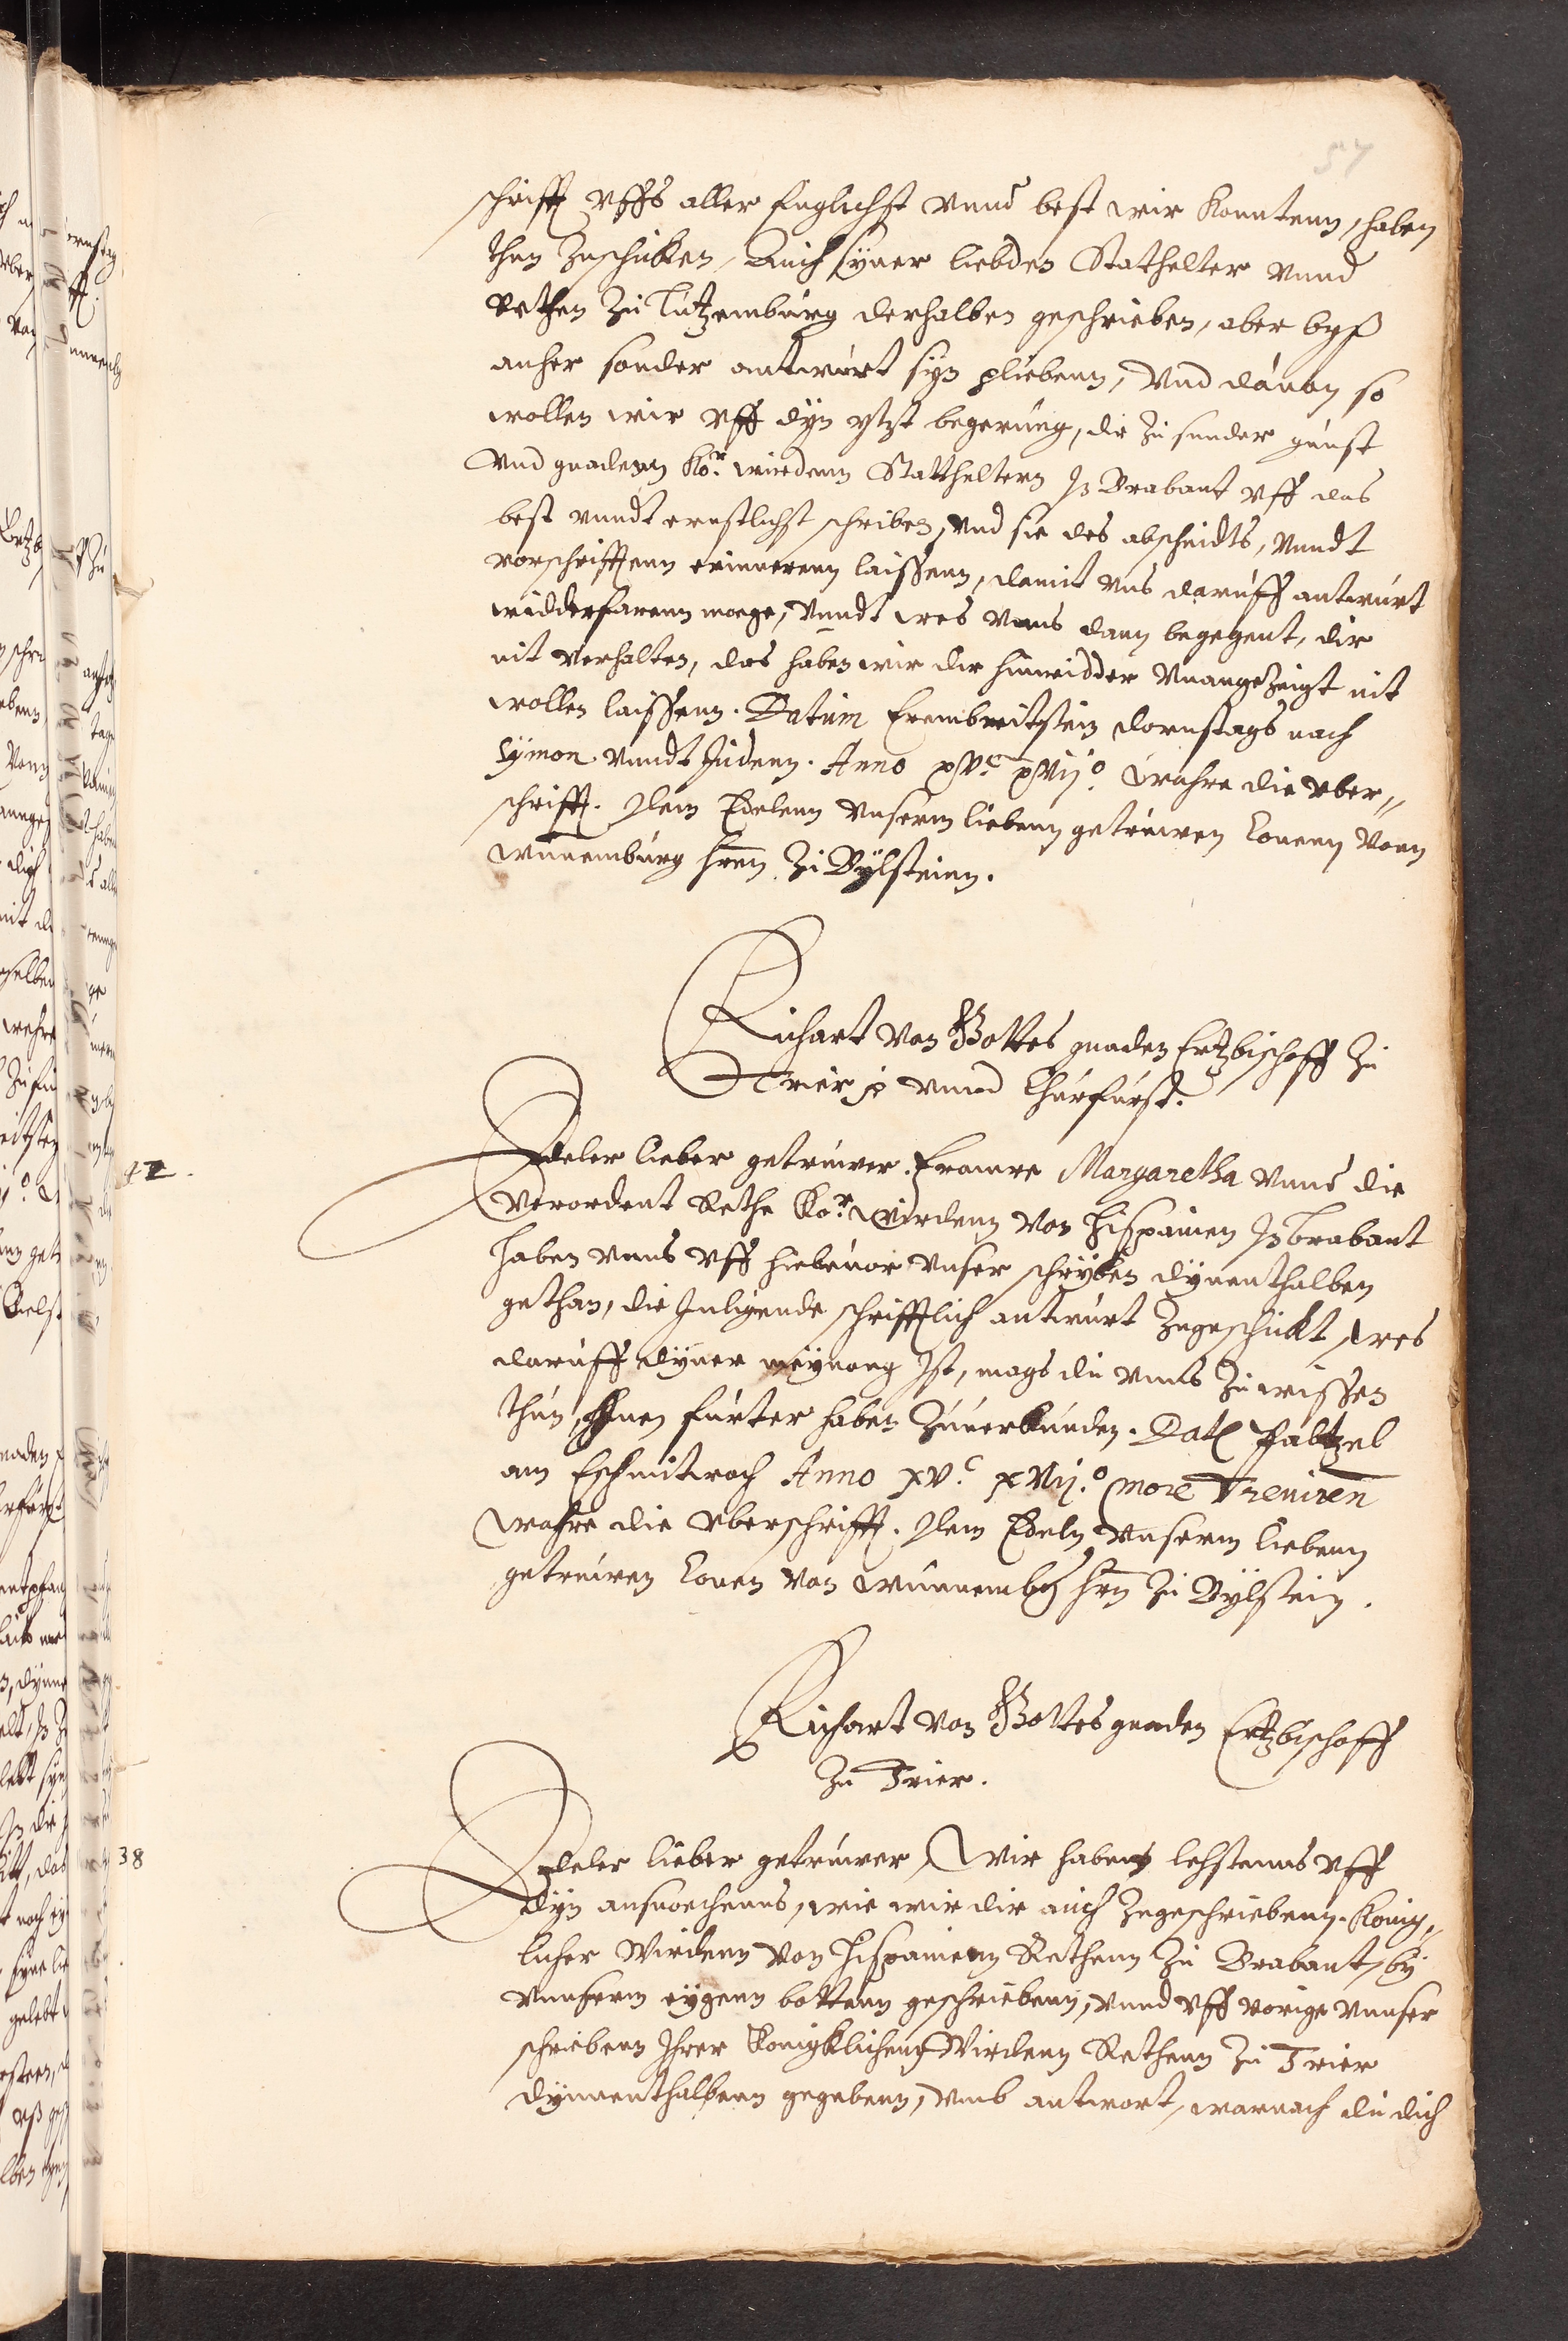 57
schrifft vffs aller fuglichst vnnd best wir konntenn, haben
thun zuschicken, Auch syner liebden Stathelter vnnd
Rethen zu Lutzemburg derhalben geschrieben, aber byß
anher sonder antwurt syn plieben, Vnd dauon so
wollen wir vff dyn ytzt begerung, dir zu sunder gunst
Vnd gnadenn Kör. wirdenn Stattheltern Jn Brabant vff das
best vnndt ernstlichst schriben, vnd sie des abscheidts, vnndt
vorschrifftenn erinnerenn laissenn, damit vns daruff antwurt
widderfarenn moege, Vnndt wes vnns dann begegent, dir
nit verhalten, das haben wir dir hinwidder vnangezeigt nit
wollen laissenn. Datum Erembreitstein dornstags nach
Symon vnndt Judenn. Anno xvc xvijo. Wahre die vber„
schrifft. Dem Edelenn vnserm liebenn getruwen Conenn vonn
Wunnemburg hrenn zu Bylsteinn.
Richart von Gottes gnaden Ertzbischoff zu
Trier p vnnd Churfurst.
42.
Edeler lieber getruwer. Frauwe Margaretha vnnd die
verordent Rethe Kör. wirdenn von Hispanien Jn Brabant
haben vnns vff hiebeuor vnser schryben dynenthalben
gethan, die Jnligende schrifftlich antwurt zugeschickt, wes
daruff dyner meynong Jst, mags du vnns zu wissen
thun, Jhnen furter haben zuuerkunden. Dat. Paltzel
am Eschmitwoch Anno xvc. xvij.o more Treuiren
Wahre die vberschrifft. Dem Edeln vnserm liebenn
getruwen Conen von Wunnembg hrn zu Bylstein.
Richart von Gottes gnaden Ertzbischoff
zu Trier.
38
Edeler lieber getruwer, Wir habenn lehstenns vff
dyn ansuochenns, wie wir dir auch zugeschriebenn. König„
licher Wirdenn von Hispanienn Rethenn zu Brabant, by
vnnserm eygenn bottenn geschriebenn, vnnd vff vorige vnnser
schriebenn Jhrer Königklichenn Wirdenn Rethenn zu Trier
dynnenthalbenn gegebenn, vmb antwort, warnach du dich